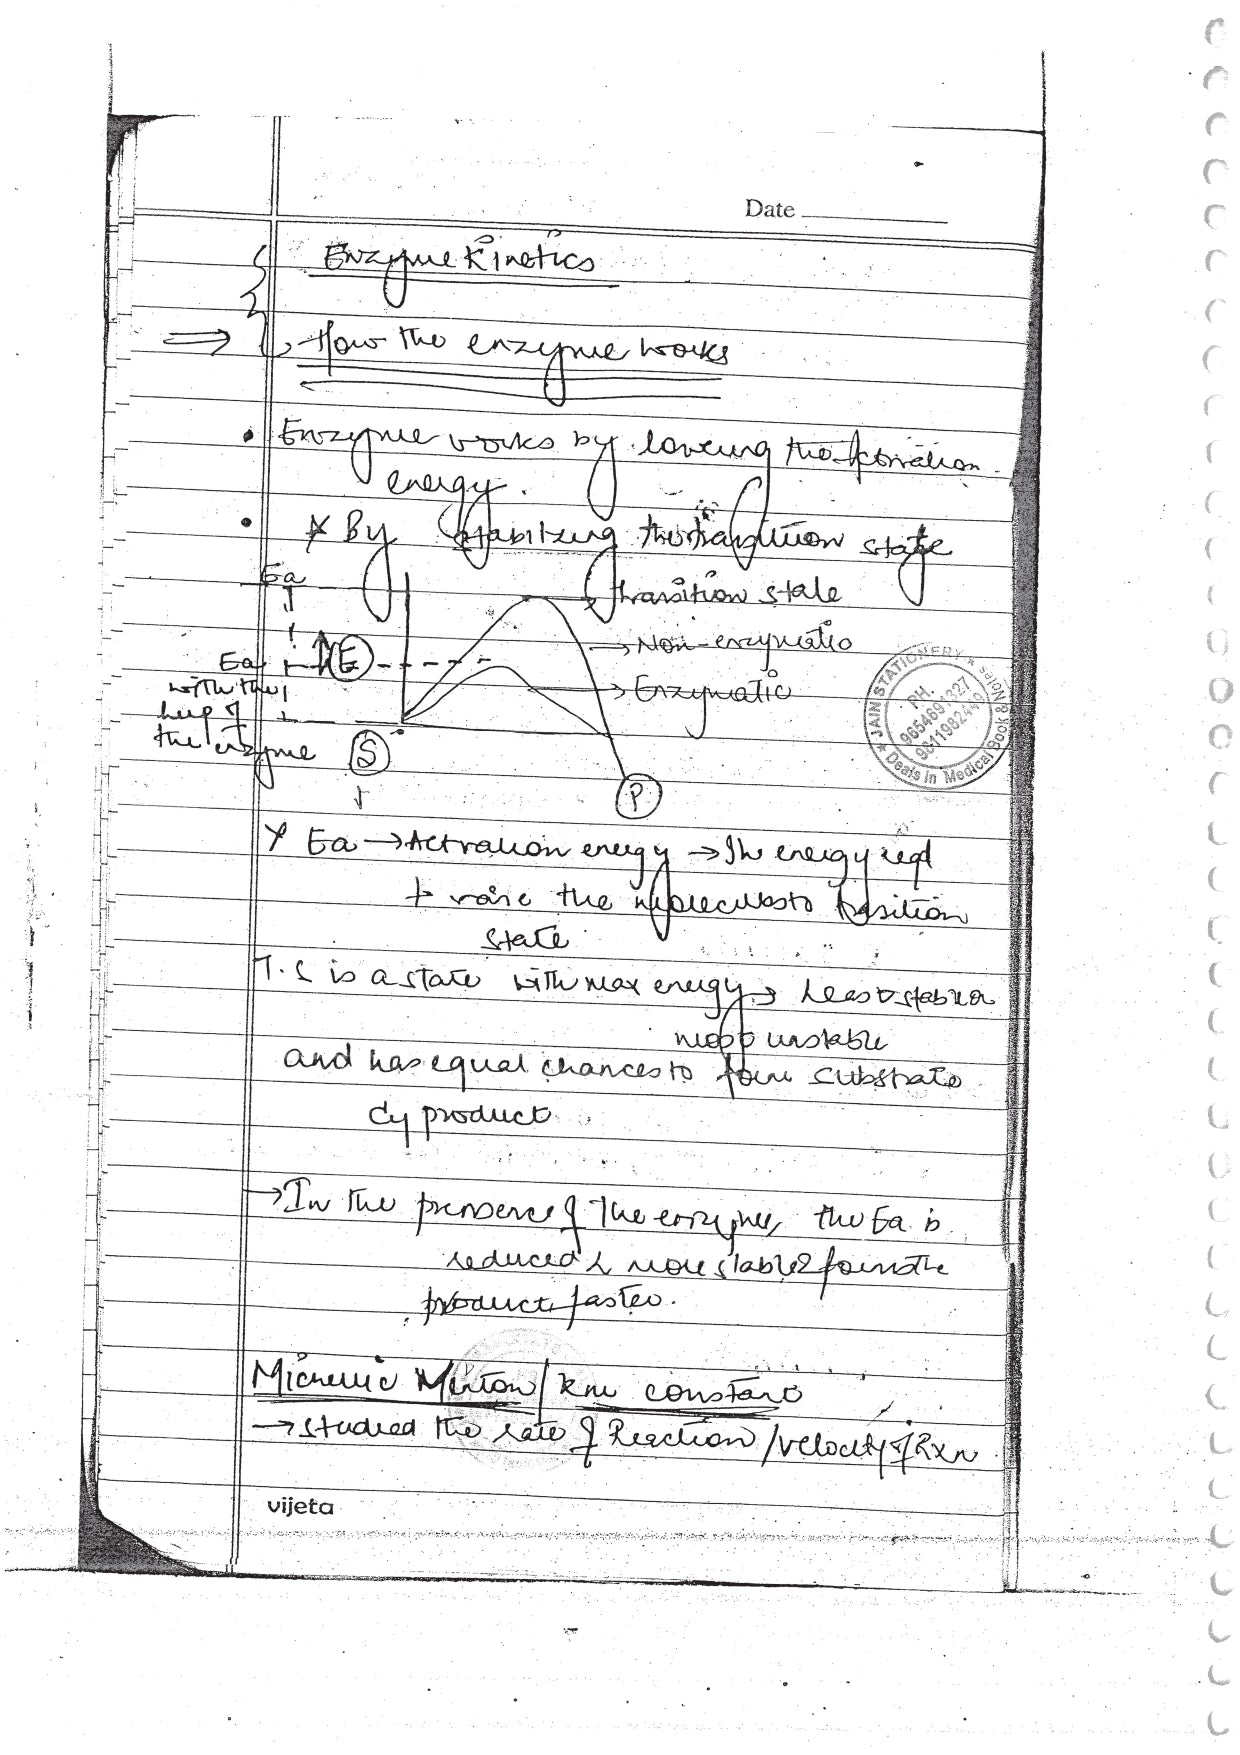 Date
Enzyme Kinetics
How the enzyme works
Enzyme works by lowering the Activation
energy.
By stabilizing the transition state
Ea
transition state
Non-enzymatic
Ea
E
with the
help of
the enzyme
Enzymatic
S
P
JAIN STATIONERY
PH.
Deals in Medical Book & Notes
Ea → Activation energy → The energy reqd
to raise the molecules to transition
state
T.S is a state with max energy → Least stable or
most unstable
and has equal chances to form substrate
or product
→ In the presence of the enzyme, the Ea is
reduced & more stable & forms the
product faster.
/ km constant
→ studied the rate of Reaction / velocity of Rxn
vijeta